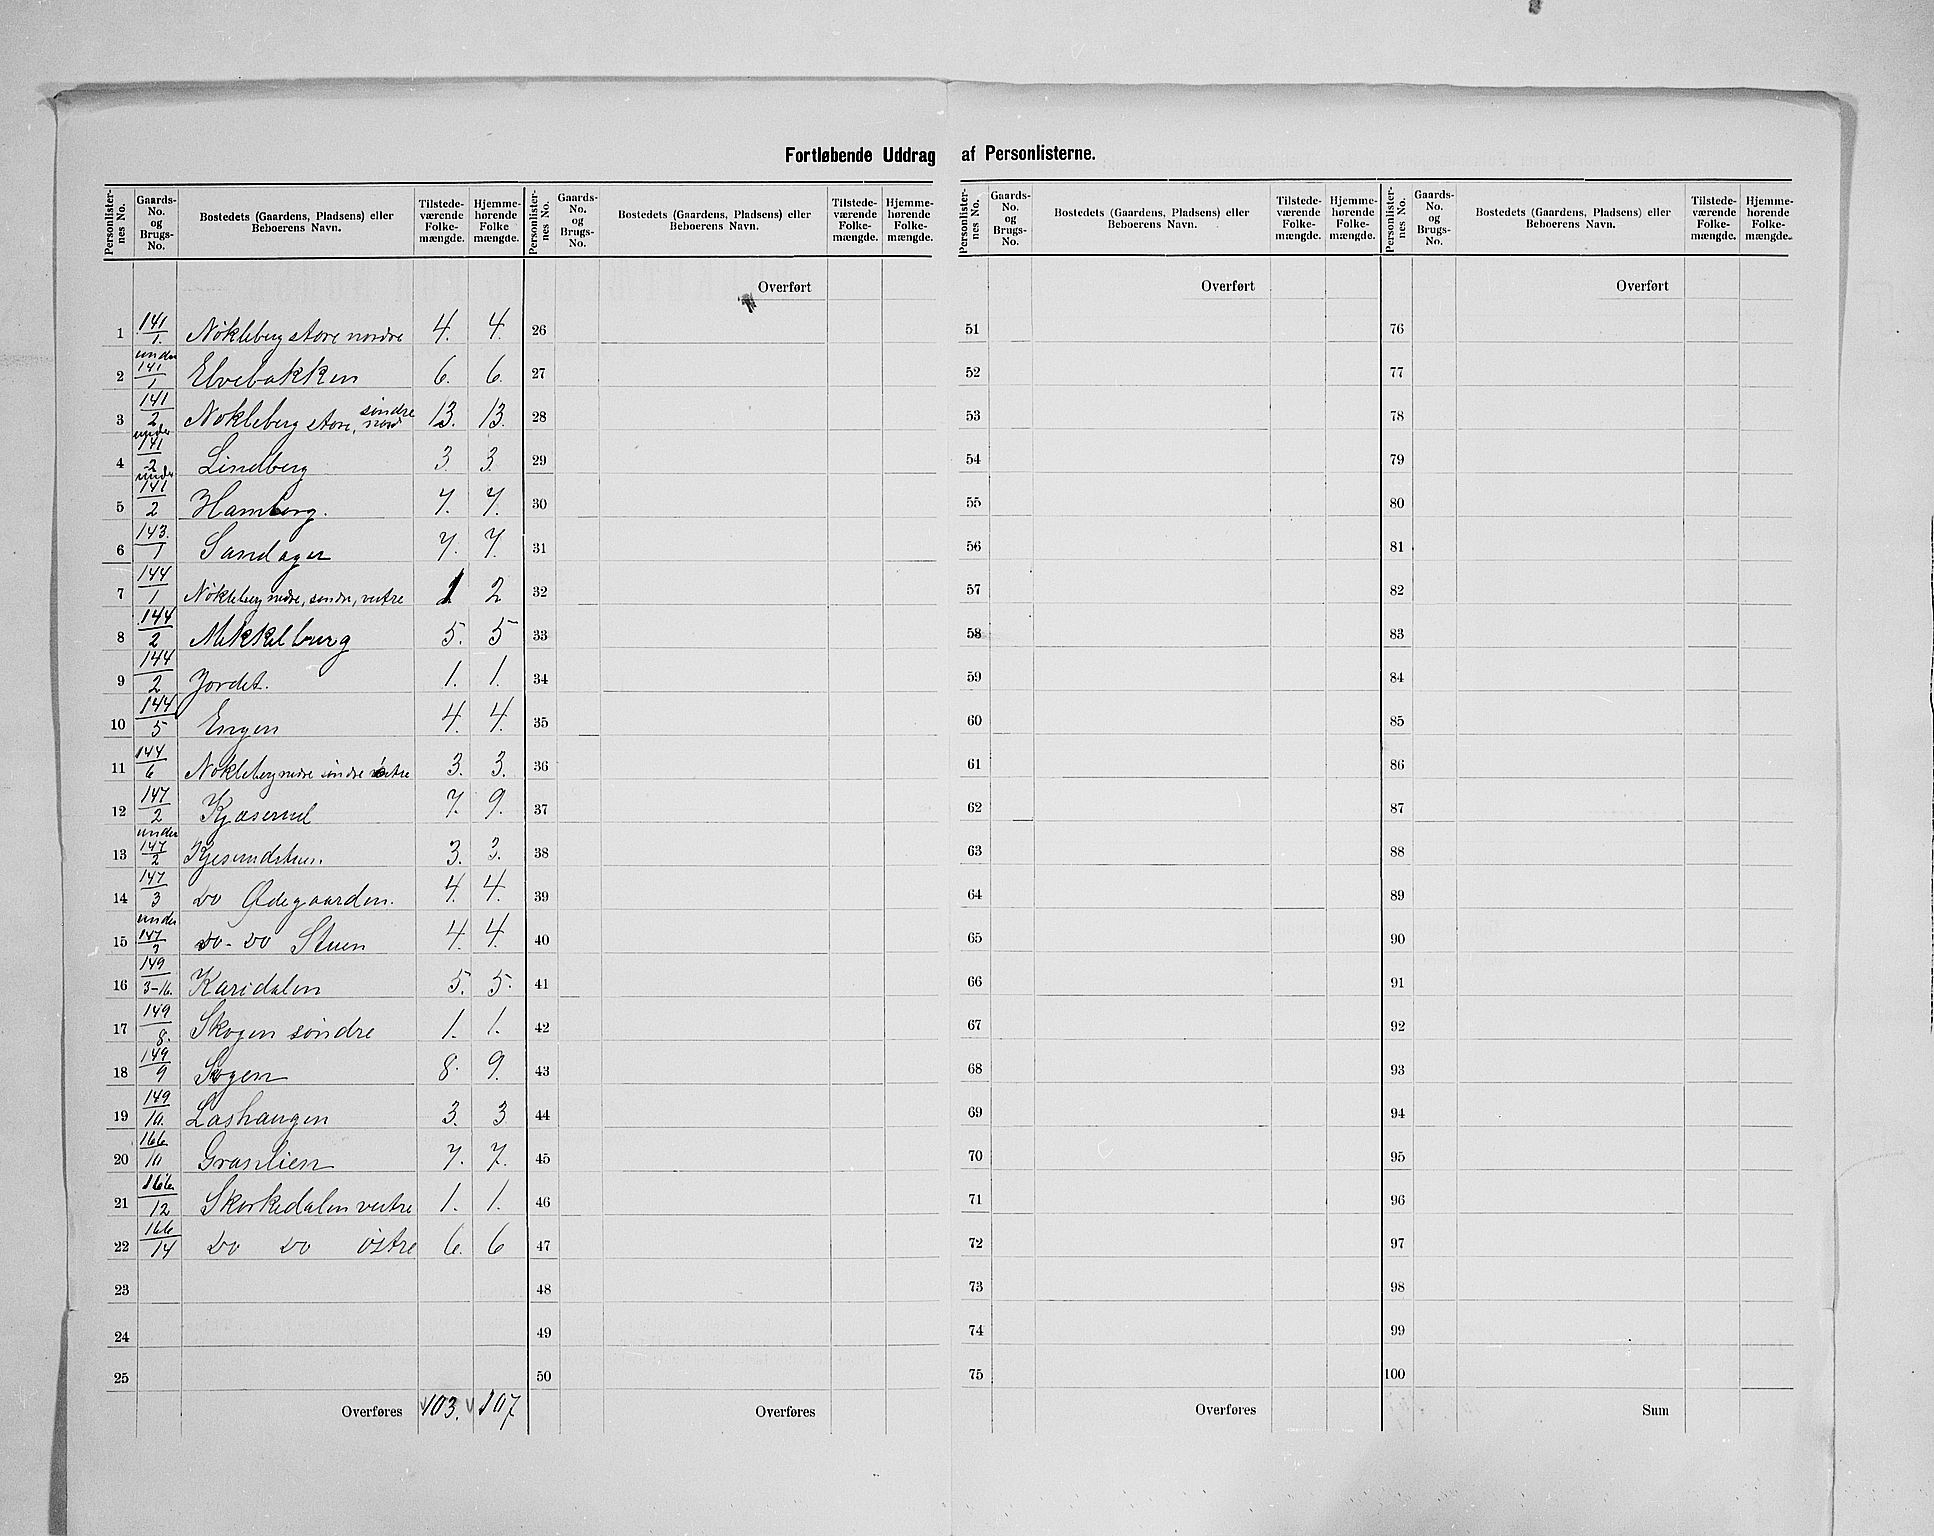 Fortløbende Uddrag af Personlisterne.
Personlisternes No. | Gaards-No. og Brugs-No. | Bostedets (Gaardens, Pladsens) eller Beboerens Navn. | Tilstedeværende Folkemængde. | Hjemmehørende Folkemængde.
1 141/1. Nökleberg store nordre 4. 4.
2 under 141/1 Elvebakken 6. 6.
3 141/2 Nökleberg store, söndre 13. 13.
4 under 141/2 Lindberg 3. 3.
5 under 141/2 Hamberg. 7. 7.
6 143./1 Sandager 7. 7.
7 144/1 Nökleberg nedre, söndre, vestre 1 2
8 144/2 Mikkelberg 5. 5
9 144/2 Jordet. 1. 1.
10 144/5 Engen 4. 4.
11 144/6 Nökleberg nedre söndre östre 3. 3.
12 147/2 Kjæserud 7. 9.
13 under 147/2 3. 3.
14 147/3 Do Ødegaarden. 4. 4.
15 under 147/3 Do-Do Stuen 4. 4.
16 149/3-16. Karidalen 5. 5.
17 149/8. Skogen söndre 1. 1.
18 149/9 Skogen 8. 9.
19 149/10. Lashaugen 3. 3
20 166/10 Granlien 7. 7.
21 166/12 Skorkedalen vestre 1. 1.
22 166/14 Do Do östre 6. 6
23
24
25
Overføres 103. 107
Personlisternes No. | Gaards-No. og Brugs-No. | Bostedets (Gaardens, Pladsens) eller Beboerens Navn. | Tilstedeværende Folkemængde. | Hjemmehørende Folkemængde.
Overført
26
27
28
29
30
31
32
33
34
35
36
37
38
39
40
41
42
43
44
45
46
47
48
49
50
Overføres
Personlisternes No. | Gaards-No. og Brugs-No. | Bostedets (Gaardens, Pladsens) eller Beboerens Navn. | Tilstedeværende Folkemængde. | Hjemmehørende Folkemængde.
Overført
51
52
53
54
55
56
57
58
59
60
61
62
63
64
65
66
67
68
69
70
71
72
73
74
75
Overføres
Personlisternes No. | Gaards-No. og Brugs-No. | Bostedets (Gaardens, Pladsens) eller Beboerens Navn. | Tilstedeværende Folkemængde. | Hjemmehørende Folkemængde.
Overført
76
77
78
79
80
81
82
83
84
85
86
87
88
89
90
91
92
93
94
95
96
97
98
99
100
Sum